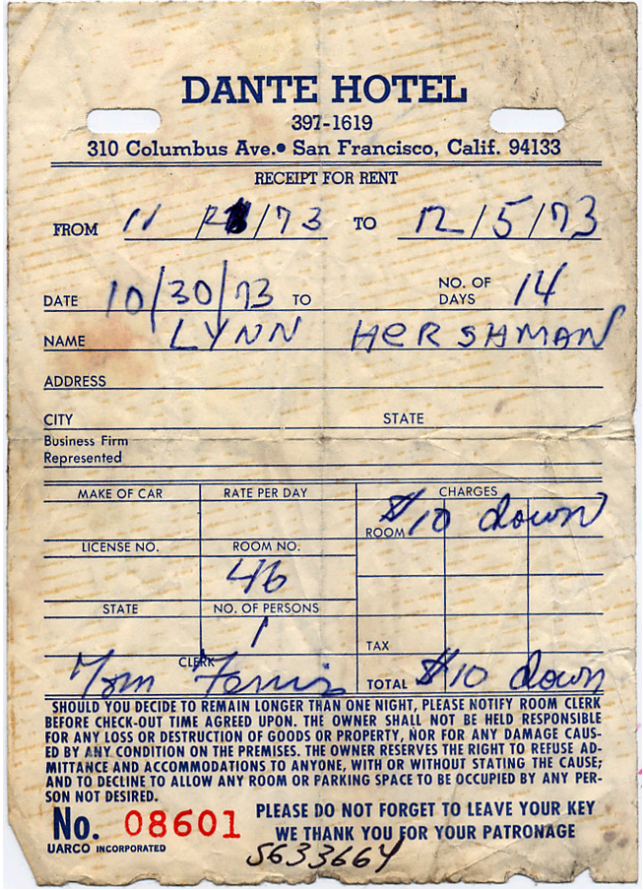 DANTE HOTEL
397-1619
310 Columbus Ave.• San Francisco, Calif. 94133
RECEIPT FOR RENT
FROM 11 / /73 TO 12/5/73
DATE 10/30/73 TO NO. OF DAYS 14
NAME LYNN HERSHMAN
ADDRESS
CITY STATE
Business Firm
Represented
MAKE OF CAR RATE PER DAY CHARGES
ROOM $10 down
LICENSE NO. ROOM NO.
46
STATE NO. OF PERSONS
1
TAX
CLERK Tom
TOTAL $10 down
SHOULD YOU DECIDE TO REMAIN LONGER THAN ONE NIGHT, PLEASE NOTIFY ROOM CLERK
BEFORE CHECK-OUT TIME AGREED UPON. THE OWNER SHALL NOT BE HELD RESPONSIBLE
FOR ANY LOSS OR DESTRUCTION OF GOODS OR PROPERTY, NOR FOR ANY DAMAGE CAUS-
ED BY ANY CONDITION ON THE PREMISES. THE OWNER RESERVES THE RIGHT TO REFUSE AD-
MITTANCE AND ACCOMMODATIONS TO ANYONE, WITH OR WITHOUT STATING THE CAUSE;
AND TO DECLINE TO ALLOW ANY ROOM OR PARKING SPACE TO BE OCCUPIED BY ANY PER-
SON NOT DESIRED.
No. 08601 PLEASE DO NOT FORGET TO LEAVE YOUR KEY
WE THANK YOU FOR YOUR PATRONAGE
UARCO INCORPORATED
5633664